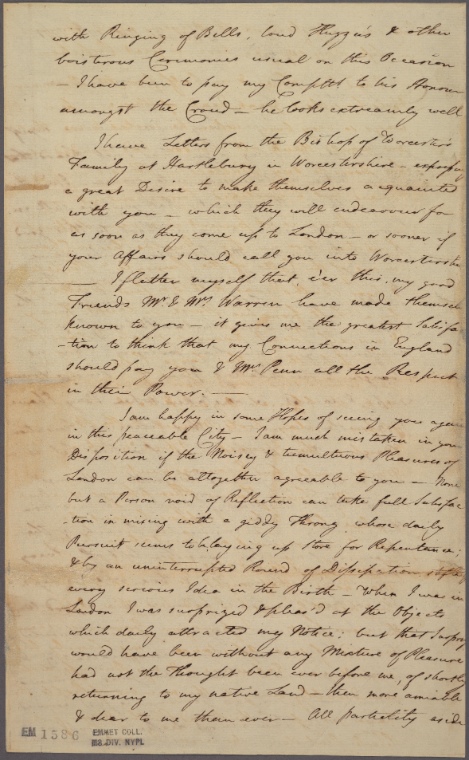 with Ringing of Bells, loud Huzza's & other
boistrous Ceremonies usual on this Occasion
– I have been to pay my Complts to his Honour
amongst the Croud – he looks extreamly well
I have Letters from the Bishop of Worcester's
Family at Hartlebury in Worcestershire – expressing
a great Desire to make themselves acquainted
with you – which they will endeavour for
as soon as they come up to London – or sooner if
your Affairs should call you into Worcestershire
– I flatter myself that, e'er this, my good
Friends Mr & Mrs Warren have made themsel
known to you – it gives me the greatest Satisfa
-tion to think that my Connections in England
should pay you & Mrs Penn all the Respect
in their Power. –
I am happy in some Hopes of seeing you again
in this peaceable City – I am much mistaken in your
Disposition if the Noisey & tumultuous Pleasures of
London can be altogether agreeable to you – None
but a Person void of Reflection can take full Satisfac
-tion in mixing with a giddy Throng, whose daily
Pursuit seems to be laying up Store for Repentance;
& by an uninterrupted Round of Dissipation
every serious Idea in the Birth – When I was in
London I was surprized & pleas'd at the Objects
which daily attracted my Notice; but that Surprize
would have been without any Mixture of Pleasure
had not the Thought been ever before me, of shortly
returning to my native Land – then more amiable
& dear to me than ever – All partiality aside
EM 1586
EMMET COLL.
MS. DIV. NYPL